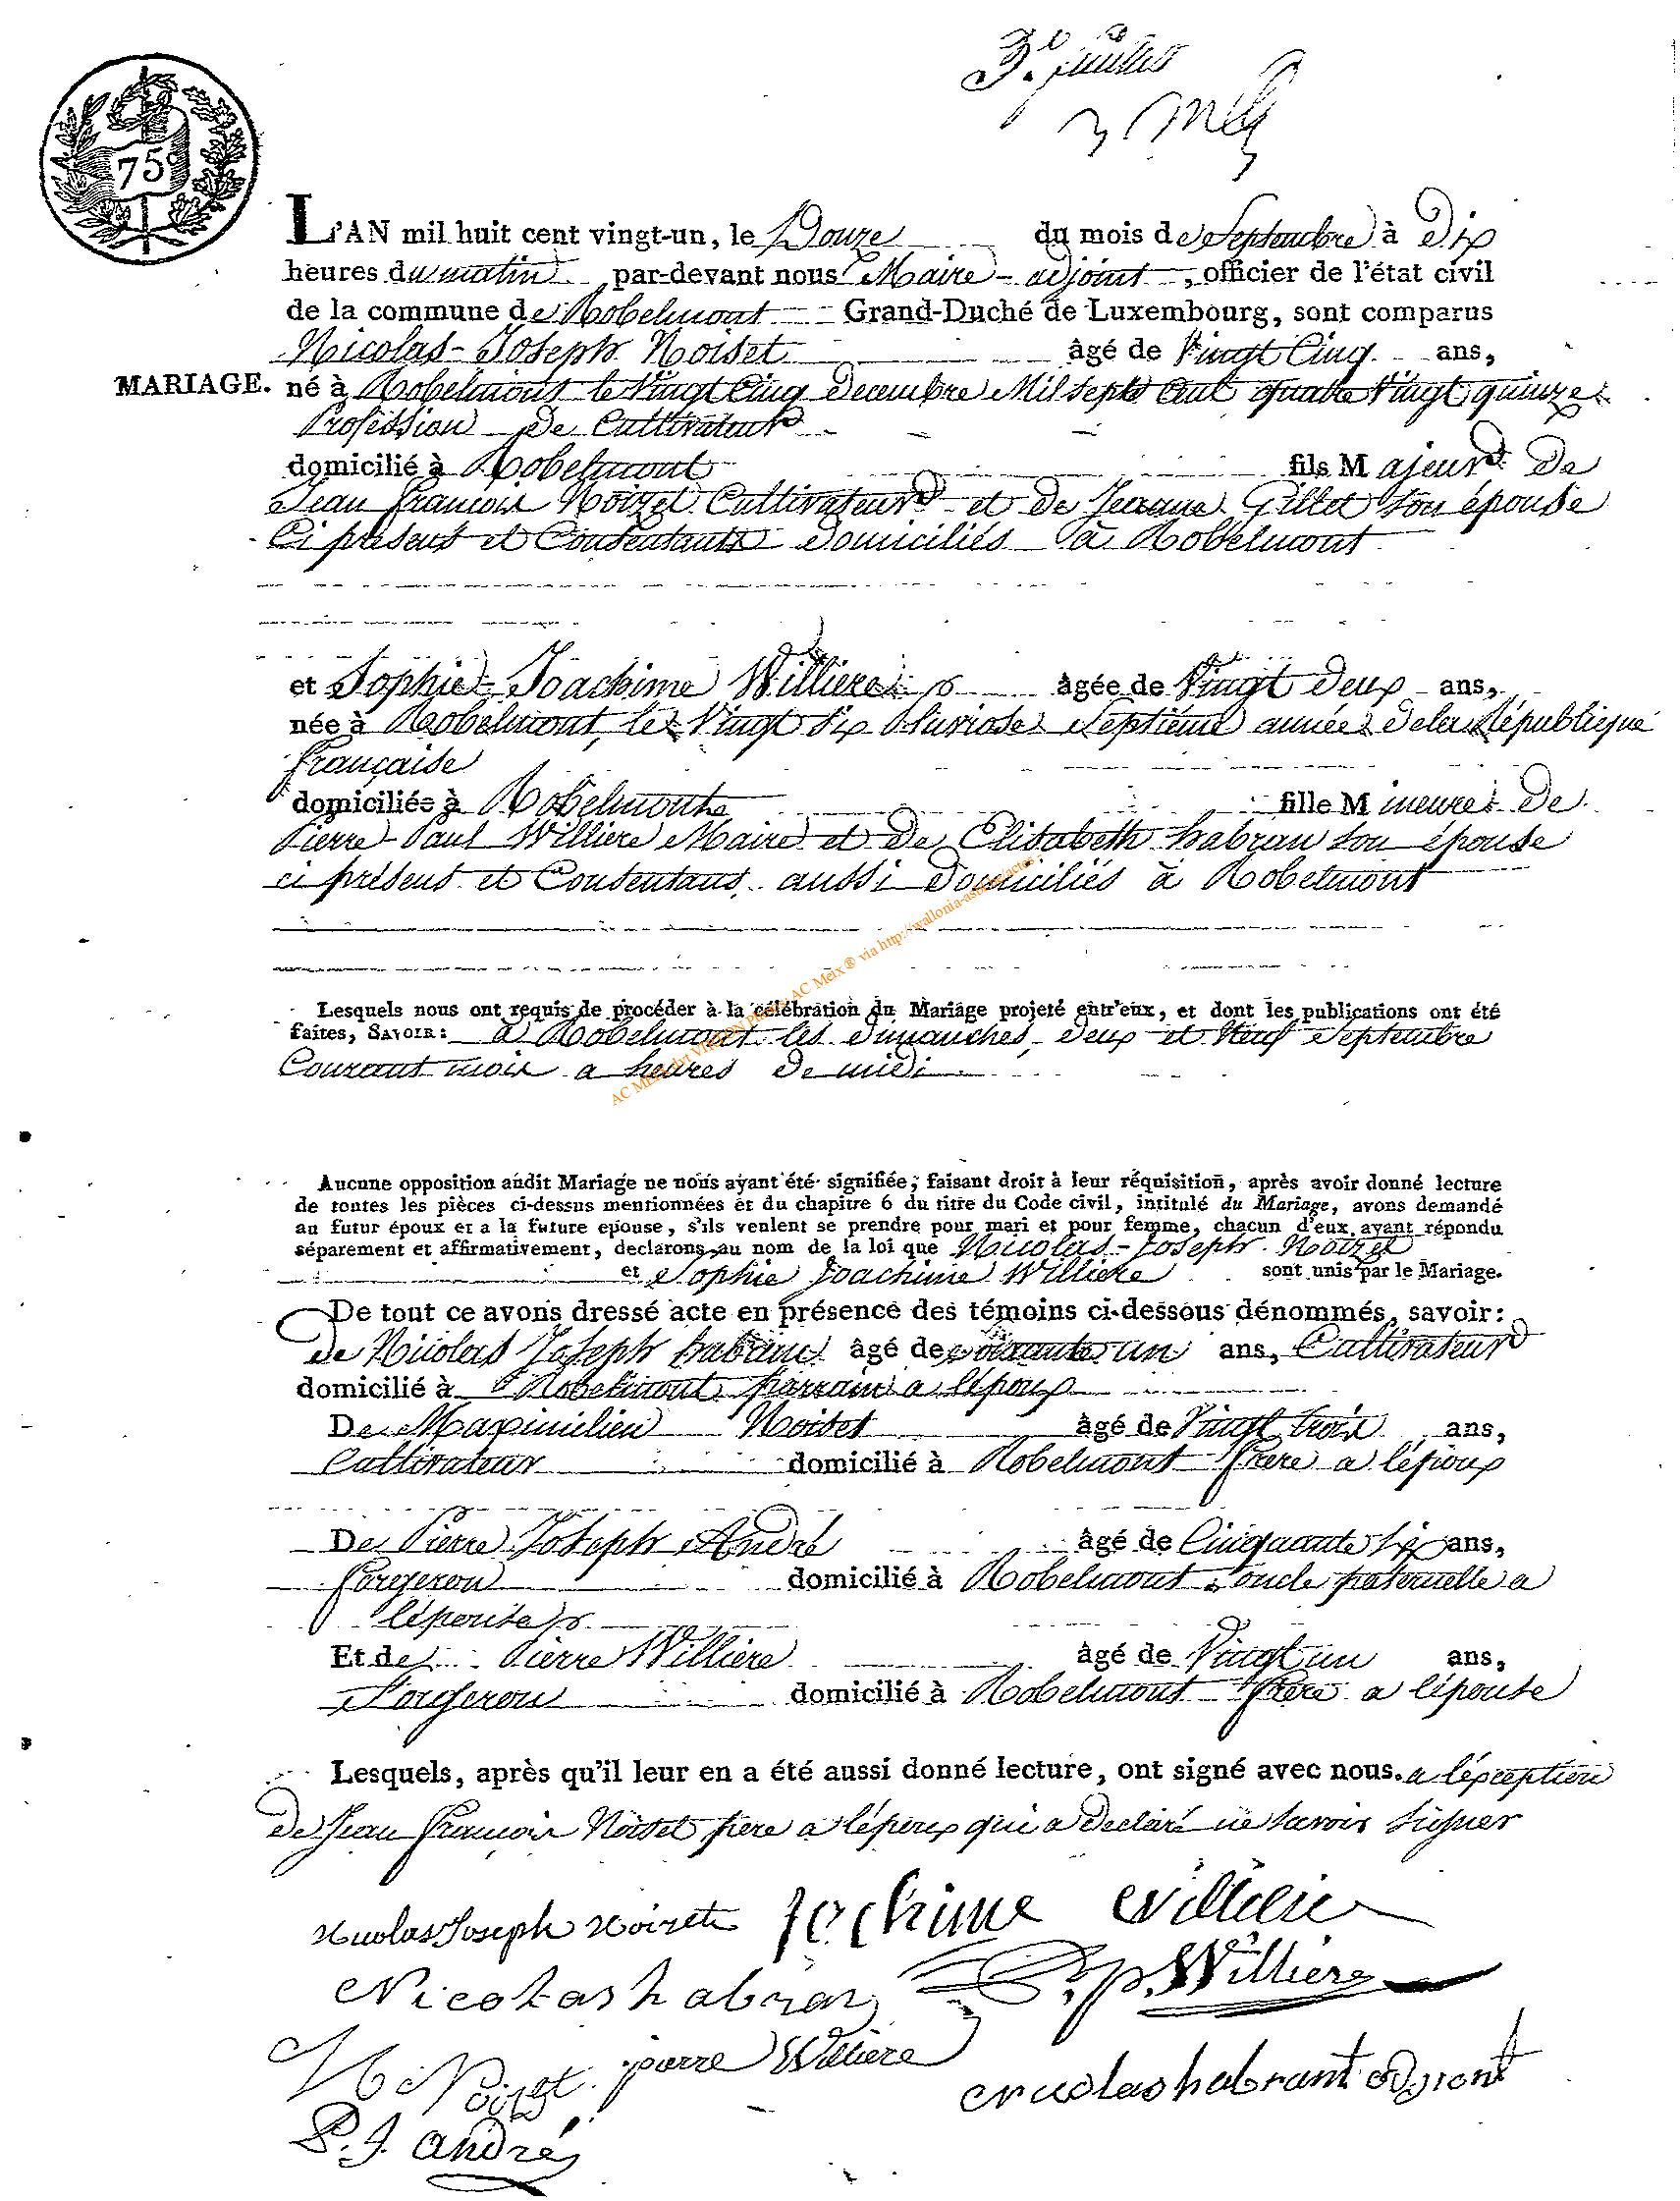 3.e feuillet
75c
L'AN mil huit cent vingt-un, le Douze du mois de Septembre à Dix
heures du matin par-devant nous Maire-adjoint, officier de l'état civil
de la commune de Robelmont Grand-Duché de Luxembourg, sont comparus
Nicolas-Joseph Noiset âgé de Vingt Cinq ans,
MARIAGE. né à Robelmont le Vingt Cinq decembre Mil sept Cent quatre Vingt quinze
Profession de Cultivateur
domicilié à Robelmont fils Majeur De
Jean françois Noizet Cultivateur et de Jeanne Gillet son épouse
Ci présent et Consentants domiciliés à Robelmont
et Sophie Joachime Williere âgée de Vingt Deux ans,
née à Robelmont, le Vingt Six Pluviose Septiéme année de la République
française
domiciliée à Robelmont fille Mineure De
Pierre-Paul Williere Maire et de Elisabeth habran son épouse
ci présens et Consentans aussi Domiciliés à Robelmont
Lesquels nous ont requis de procéder à la célébration du Mariage projeté entr'eux, et dont les publications ont été
faites, SAVOIR: à Robelmont les dimanches, deux et Neuf Septembre
Courant mois a heures de midi
Aucune opposition audit Mariage ne nous ayant été signifiée; faisant droit à leur réquisition, après avoir donné lecture
de toutes les pièces ci-dessus mentionnées et du chapitre 6 du titre du Code civil, intitulé du Mariage, avons demandé
au futur époux et a la future epouse, s'ils veulent se prendre pour mari et pour femme, chacun d'eux ayant répondu
séparement et affirmativement, declarons au nom de la loi que Nicolas-Joseph Noizet
et Sophie Joachime Williere sont unis par le Mariage.
De tout ce avons dressé acte en présence des témoins ci-dessous dénommés, savoir:
de Nicolas Joseph habran âgé de soixante un ans, Cultivateur
domicilié à Robelmont parrain a l'époux
De Maximilien Noiset âgé de Vingt trois ans,
Cultivateur domicilié à Robelmont frere a l'époux
De Pierre Joseph André âgé de Cinquante six ans,
forgeron domicilié à Robelmont oncle paternelle a
l'épouse
Et de Pierre Williere âgé de Vingt un ans,
Forgeron domicilié à Robelmont frere a l'épouse
Lesquels, après qu'il leur en a été aussi donné lecture, ont signé avec nous. a l'éxception
De Jean françois Noiset pere a l'époux qui a declaré ne savoir signer
Nicolas Joseph Noizet Jochime Williere
Nicolas habran P. p. Williere
M Noizet pierre Williere
Nicolas habrant adjoint
P. J. andré
AC Meix ® via http://wallonia-asbl